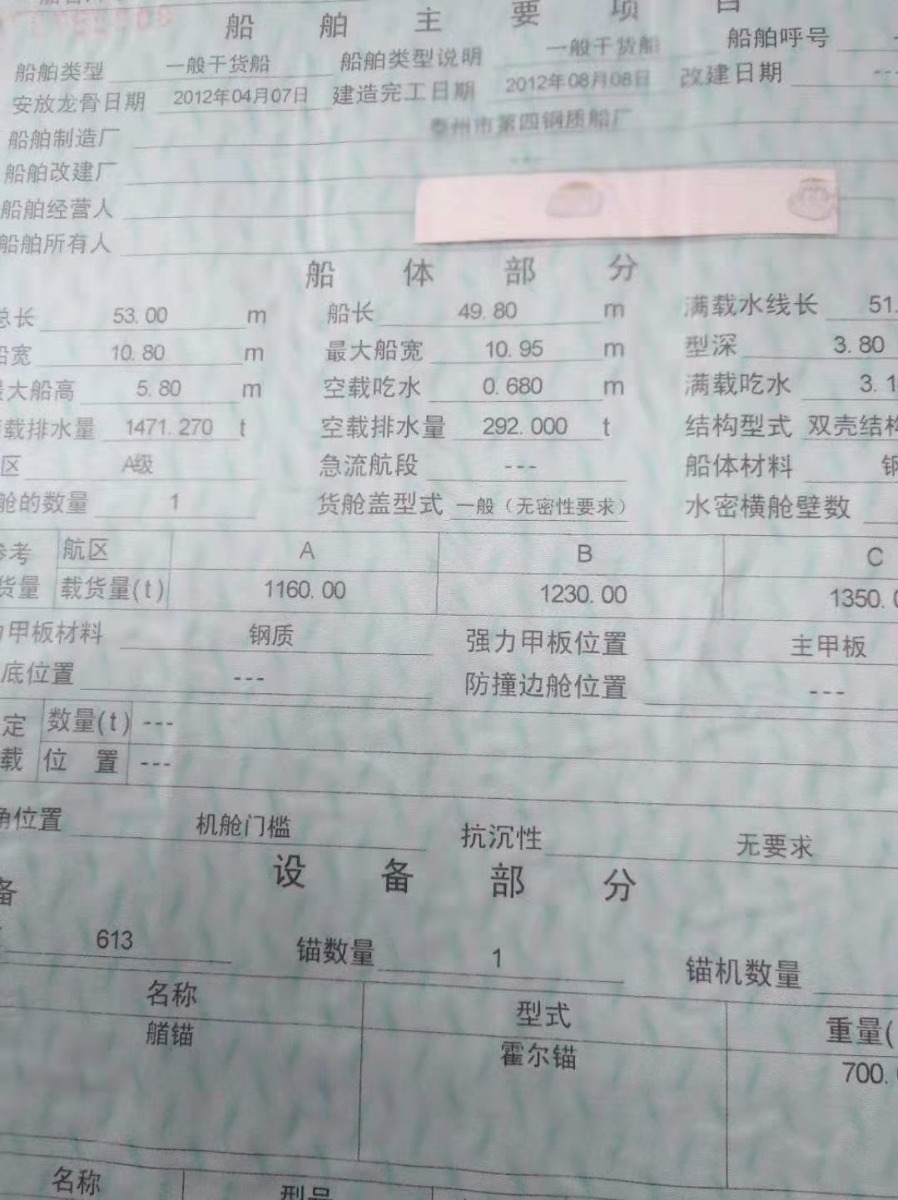 船舶主要项目
船舶类型 一般干货船 船舶类型说明 一般干货船 船舶呼号
安放龙骨日期 2012年04月07日 建造完工日期 2012年08月08日 改建日期 ---
船舶制造厂 泰州市第四钢质船厂
船舶改建厂
船舶经营人
船舶所有人
船体部分
总长 53.00 m 船长 49.80 m 满载水线长 51.
船宽 10.80 m 最大船宽 10.95 m 型深 3.80
最大船高 5.80 m 空载吃水 0.680 m 满载吃水 3.1
载排水量 1471.270 t 空载排水量 292.000 t 结构型式 双壳结构
区 A级 急流航段 --- 船体材料 钢
舱的数量 1 货舱盖型式 一般（无密性要求） 水密横舱壁数
参考 航区 A B C
货量 载货量(t) 1160.00 1230.00 1350.0
力甲板材料 钢质 强力甲板位置 主甲板
底位置 --- 防撞边舱位置 ---
定 数量(t) ---
载 位置 ---
角位置 机舱门槛 抗沉性 无要求
设备部分
备
613 锚数量 1 锚机数量
名称 型式 重量(
艏锚 霍尔锚 700.
名称 型号